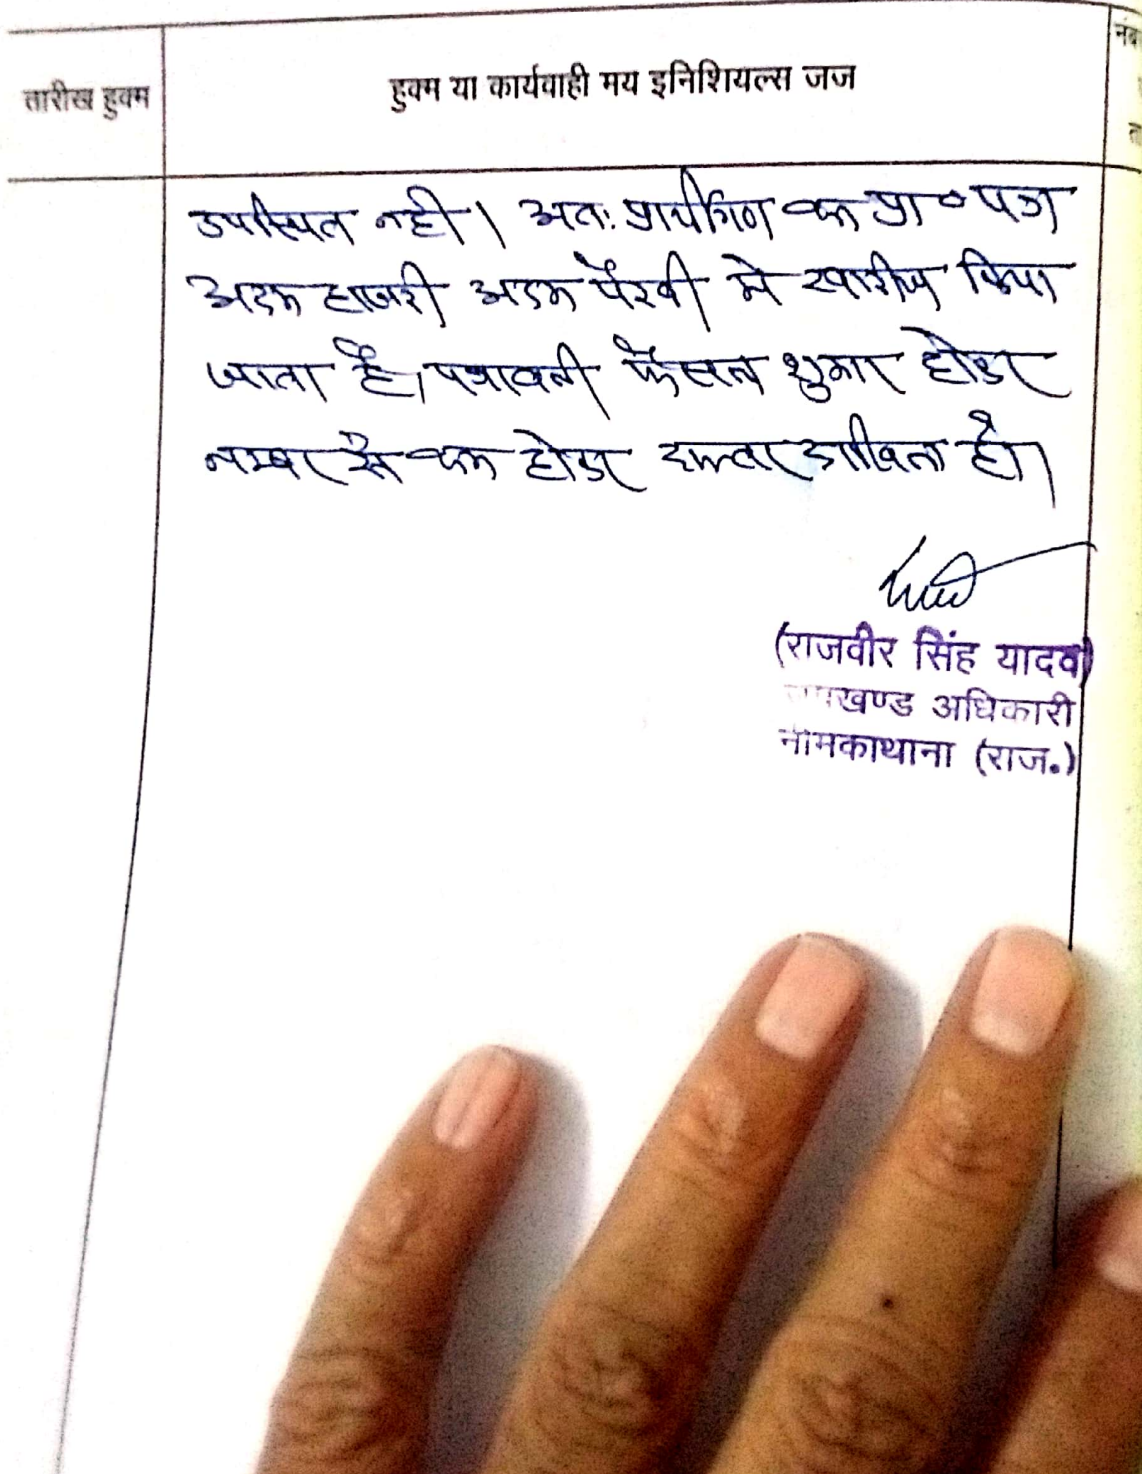 तारीख हुक्म
हुक्म या कार्यवाही मय इनिशियल्स जज
नंब
उपस्थित नही। अतः प्रार्थीगण का प्रा० पत्र
अदम हाजरी अदम पैरवी मे खारीज किया
जाता है। पत्रावली फैसल शुमार होकर
नम्बर से कम होकर दफ्तर दाखिल हो।
(राजवीर सिंह यादव)
उपखण्ड अधिकारी
नीमकाथाना (राज.)